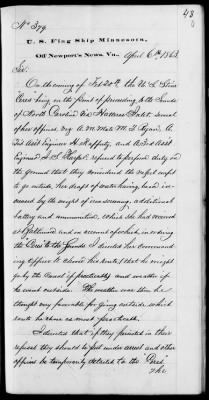 48
No 394
U. S. Flag Ship Minnesota,
Off Newport's News, Va., April 6th, 1863.
Sir:
On the evening of Feb 20th the U. S. Str
"Ceres" being on the point of proceeding to the Sounds
of North Carolina via Hatteras Inlet several
of her officers, viz A. M. Mate M. F.
3d Asst Engineer H. Rafferty, and A. 3d Asst
Engineer refused to perform duty on
the ground that they considered the vessel unfit
to go outside, her draft of water having been in-
creased by the weight of iron screening, additional
battery and ammunition, which she had received
at and on account of which in ordering
the "Ceres" to the Sounds I directed her command-
ing officer to choose his route, that he might
go by the Canal if practicable and weather if
he went outside. The weather was then he
thought very favorable for going outside which
route he chose as most practicable.
I directed that if they persisted in their
refusal they should be put under arrest and other
officers be temporarily detailed to the "Ceres"
The